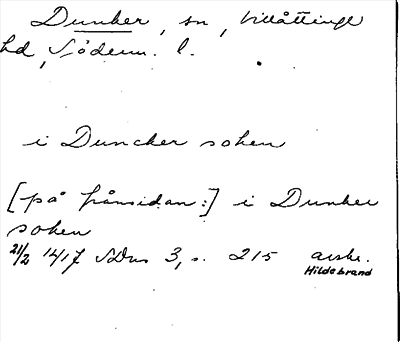 Dunker, sn, Villåttinge
hd, Söderm. l.
i Duncker soken
[på frånsidan:] i Dunker
soken
21/2 1417 SDns 3, s. 215 avskr.
Hildebrand